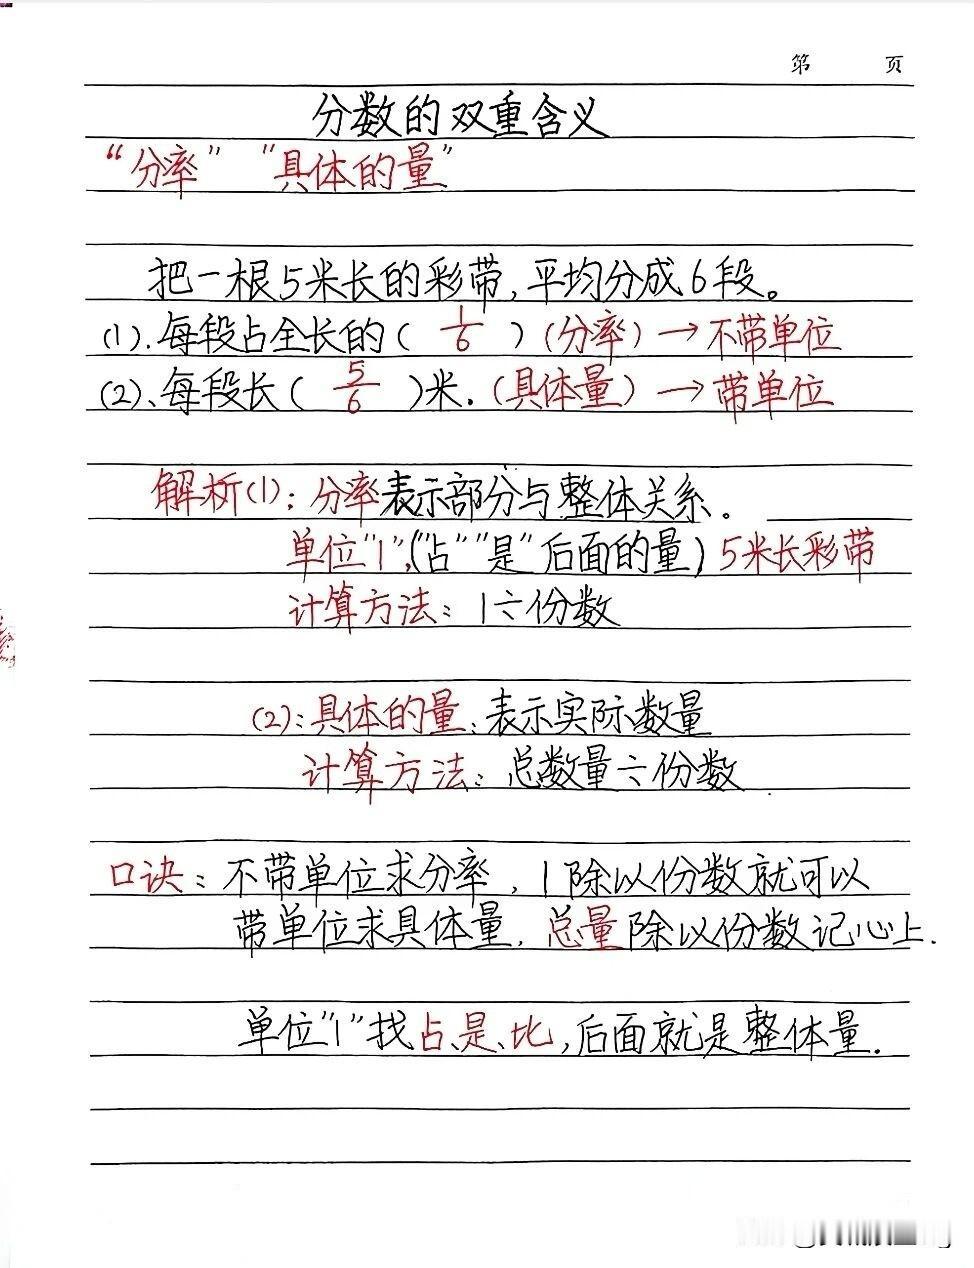 第 页
分数的双重含义
“分率” “具体的量”
把一根5米长的彩带,平均分成6段。
(1).每段占全长的( 1/6 )(分率)→不带单位
(2)、每段长( 5/6 )米.(具体量)→带单位
解析(1):分率表示部分与整体关系。
单位“1”,(“占”“是”后面的量)5米长彩带
计算方法:1÷份数
(2):具体的量:表示实际数量
计算方法:总数量÷份数
口诀:不带单位求分率,1除以份数就可以
带单位求具体量,总量除以份数记心上.
单位“1”找占、是、比,后面就是整体量.